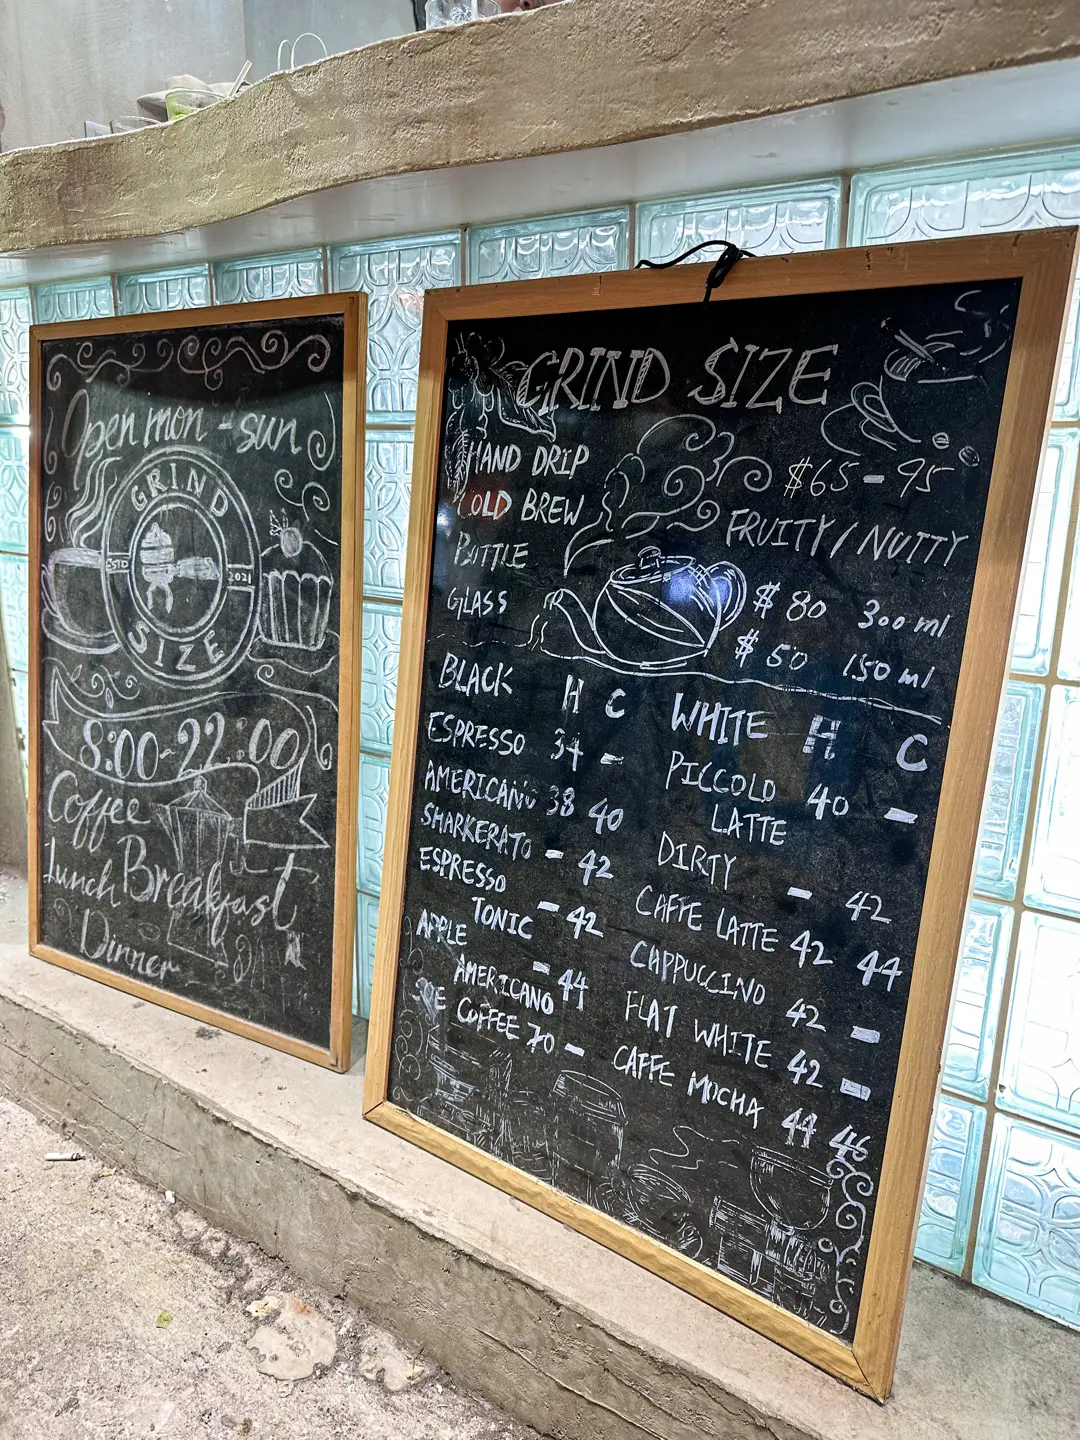 Open mon - sun
GRIND
ESTD 2021
SIZE
8:00-22:00
Coffee
Lunch Breakfast
Dinner
GRIND SIZE
HAND DRIP $65-95
COLD BREW FRUITY / NUTTY
BOTTLE $80 300ml
GLASS $50 150ml
BLACK H C
ESPRESSO 34 -
AMERICANO 38 40
SHARKERATO - 42
ESPRESSO
TONIC - 42
APPLE
AMERICANO - 44
COFFEE 70 -
WHITE H C
PICCOLO 40 -
LATTE
DIRTY - 42
CAFFE LATTE 42 44
CAPPUCCINO 42 -
FLAT WHITE 42 -
CAFFE MOCHA 44 46